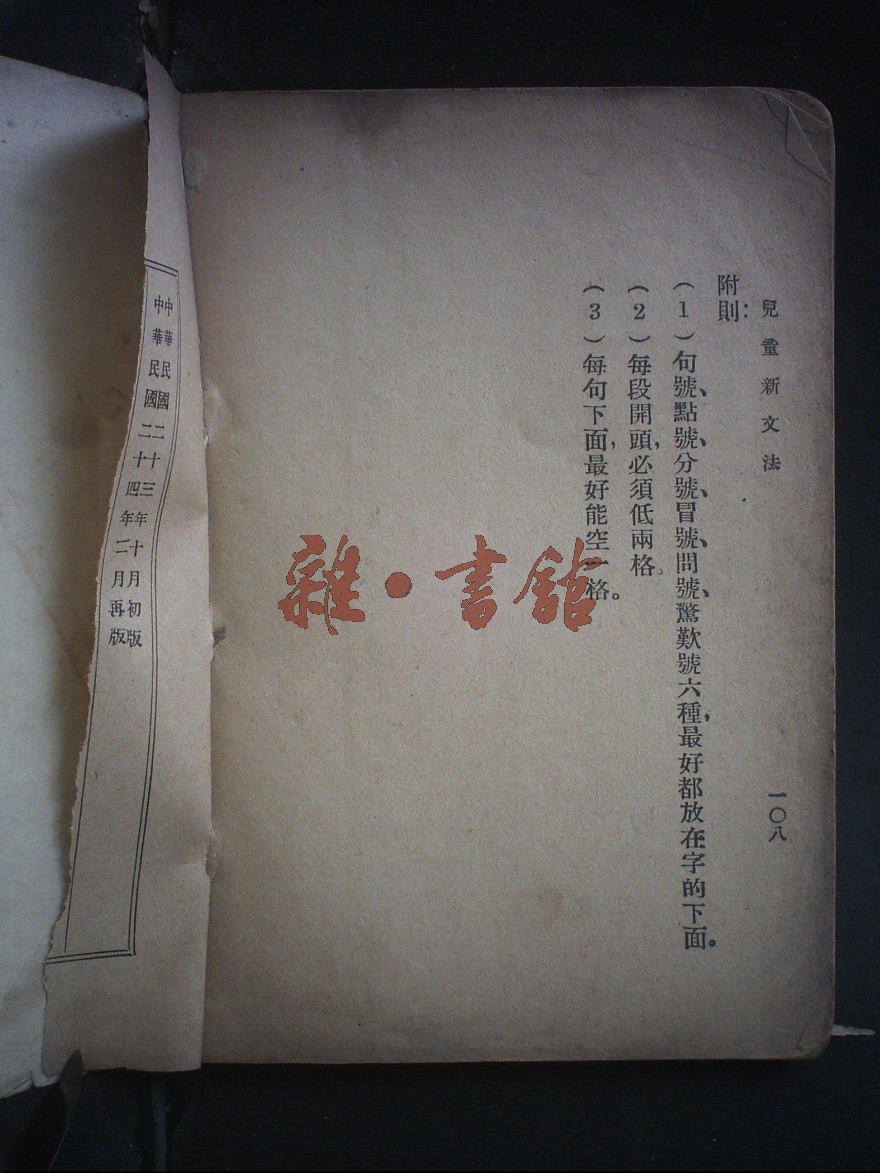 兒童新文法
一〇八
附則：
（1）句號、點號、分號、冒號、問號、驚歎號六種，最好都放在字的下面。
（2）每段開頭，必須低兩格。
（3）每句下面，最好能空一格。
中華民國二十三年十月初版
中華民國二十四年二月再版
雜·書館